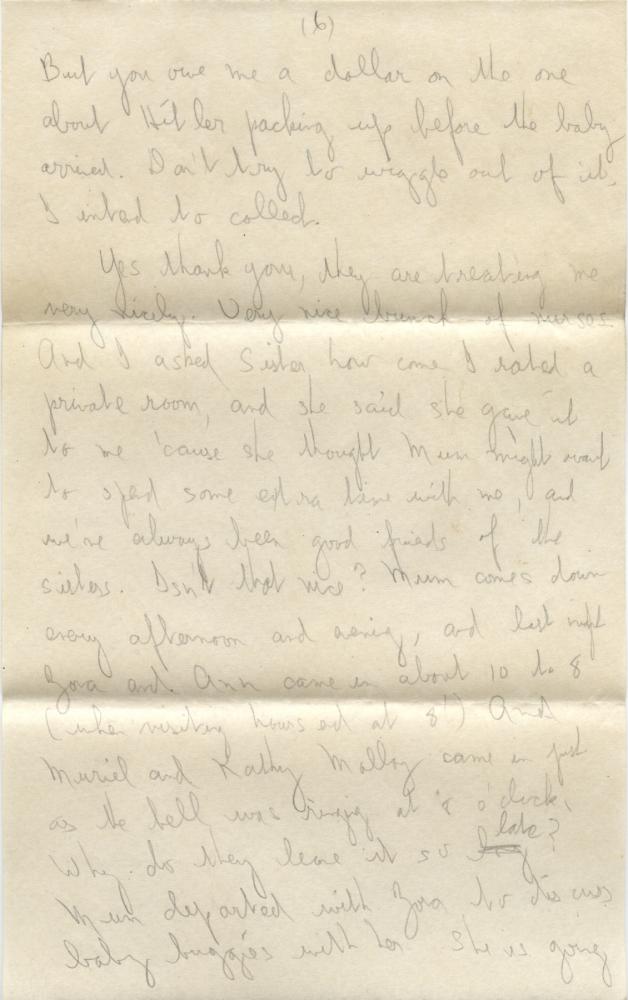 (6)
But you owe me a dollar on the one
about Hitler packing up before the baby
arrived. Don't try to wiggle out of it,
I inted to colled.
Yes thank you, they are treating me
very nicely. Very nice bunch of nurses.
And I asked Sister how come I rated a
private room, and she said she gave it
to me 'cause she thought Mum might want
to sped some extra time with me, and
we've always been good frieds of the
sisters. Isn't that nice? Mum comes down
every afternoon and evenig, and last night
Zora and Ann came in about 10 to 8
(when visiting hours ed at 8!) And
Muriel and Kathy Molloy came in just
as the bell was ringig at 8 o'clock,
Why do they leave it so late?
Mum departed with Zora to discuss
baby buggies with her. She is going